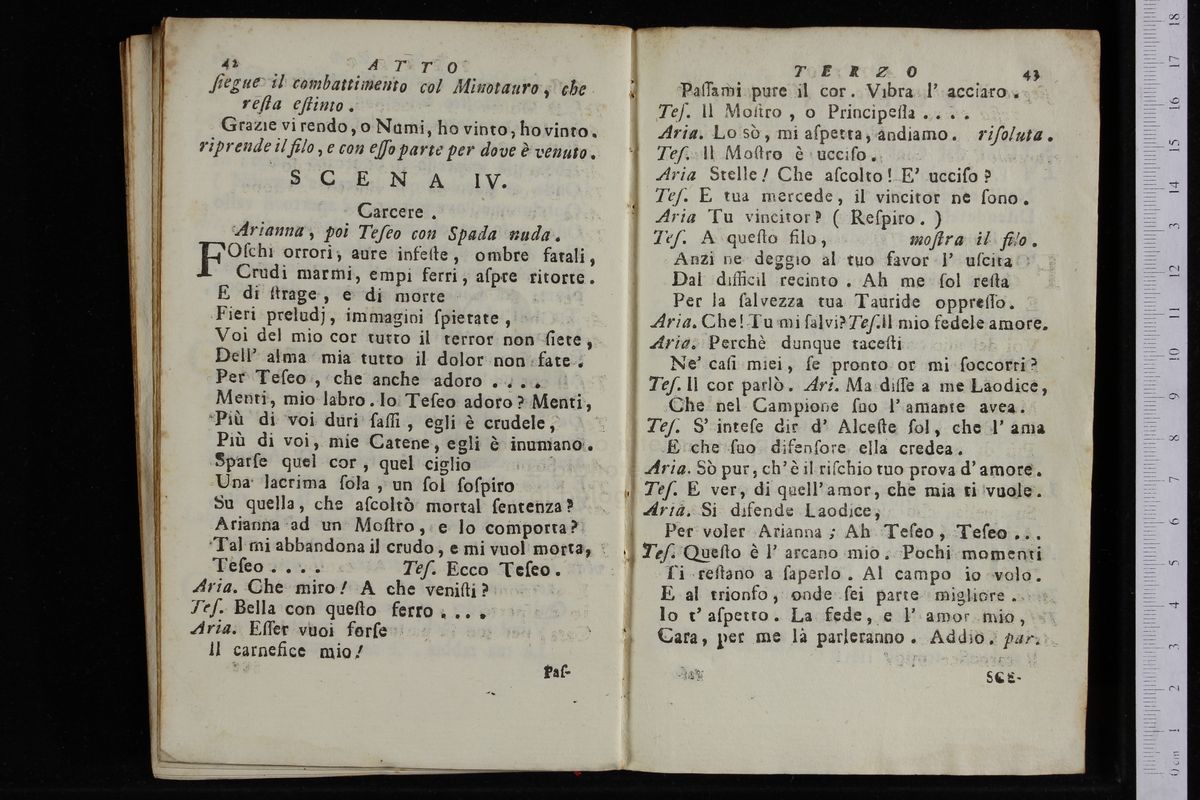 42 ATTO
ſiegue il combattimento col Minotauro, che
reſta eſtinto.
Grazie vi rendo, o Numi, ho vinto, ho vinto.
riprende il filo, e con eſſo parte per dove è venuto.
SCENA IV.
Carcere.
Arianna, poi Teſeo con Spada nuda.
FOſchi orrori, aure infeſte, ombre fatali,
Crudi marmi, empi ferri, aſpre ritorte.
E di ſtrage, e di morte
Fieri preludj, immagini ſpietate,
Voi del mio cor tutto il terror non ſiete,
Dell' alma mia tutto il dolor non fate.
Per Teſeo, che anche adoro ....
Menti, mio labro. Io Teſeo adoro? Menti,
Più di voi duri ſaſſi, egli è crudele,
Più di voi, mie Catene, egli è inumano.
Sparſe quel cor, quel ciglio
Una lacrima ſola, un ſol ſoſpiro
Su quella, che aſcoltò mortal ſentenza?
Arianna ad un Moſtro, e lo comporta?
Tal mi abbandona il crudo, e mi vuol morta,
Teſeo .... Teſ. Ecco Teſeo.
Aria. Che miro! A che veniſti?
Teſ. Bella con queſto ferro ....
Aria. Eſſer vuoi forſe
Il carnefice mio!
Paſ-
TERZO 43
Paſſami pure il cor. Vibra l' acciaro.
Teſ. Il Moſtro, o Principeſſa ....
Aria. Lo sò, mi aſpetta, andiamo. riſoluta.
Teſ. Il Moſtro è ucciſo.
Aria Stelle! Che aſcolto! E' ucciſo?
Teſ. E tua mercede, il vincitor ne ſono.
Aria Tu vincitor? (Reſpiro.)
Teſ. A queſto filo, moſtra il filo.
Anzi ne deggio al tuo favor l' uſcita
Dal difficil recinto. Ah me ſol reſta
Per la ſalvezza tua Tauride oppreſſo.
Aria. Che! Tu mi ſalvi? Teſ. Il mio fedele amore.
Aria. Perchè dunque taceſti
Ne' caſi miei, ſe pronto or mi ſoccorri?
Teſ. Il cor parlò. Ari. Ma diſſe a me Laodice,
Che nel Campione ſuo l' amante avea.
Teſ. S' inteſe dir d' Alceſte ſol, che l' ama
E che ſuo difenſore ella credea.
Aria. Sò pur, ch' è il riſchio tuo prova d' amore.
Teſ. E ver, di quell' amor, che mia ti vuole.
Aria. Si difende Laodice,
Per voler Arianna; Ah Teſeo, Teſeo ...
Teſ. Queſto è l' arcano mio. Pochi momenti
Ti reſtano a ſaperlo. Al campo io volo.
E al trionfo, onde ſei parte migliore.
Io t' aſpetto. La fede, e l' amor mio,
Cara, per me là parleranno. Addio. par.
SCE-
0 cm 1 2 3 4 5 6 7 8 9 10 11 12 13 14 15 16 17 18